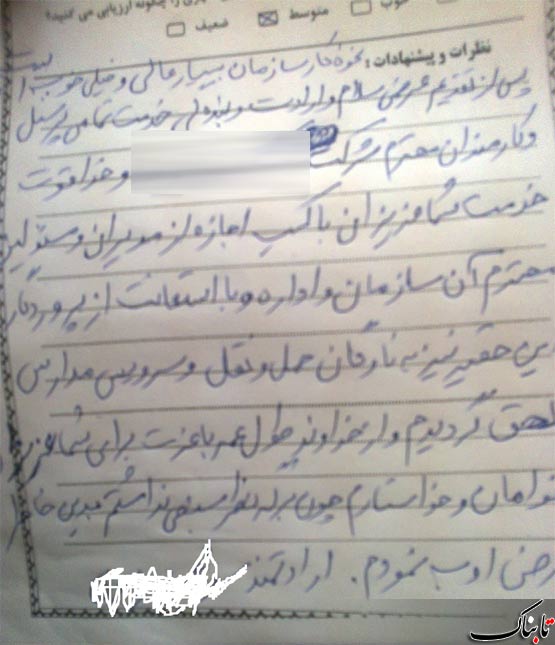 را چگونه ارزیابی می کنید؟
خوب متوسط ضعیف
نظرات و پیشنهادات: نحوه کار سازمان بسیار عالی و خیلی خوب است
پس از تقدیم عرض سلام و ارادت و بندگی خدمت تمامی پرسنل
و کارمندان محترم شرکت و خدا قوت
خدمت شما عزیزان با کسب اجازه از مدیران و مسئولین
محترم آن سازمان و اداره و با استعانت از پروردگار
این حقیر نیز به ناوگان حمل و نقل و سرویس مدارس
ملحق گردیدم و از خداوند طول عمر با عزت برای شما عزیزان
خواهان و خواستارم چون برگه نظرسنجی نداشتم بدین خاطر
عرض ادب نمودم. ارادتمند
تابناک